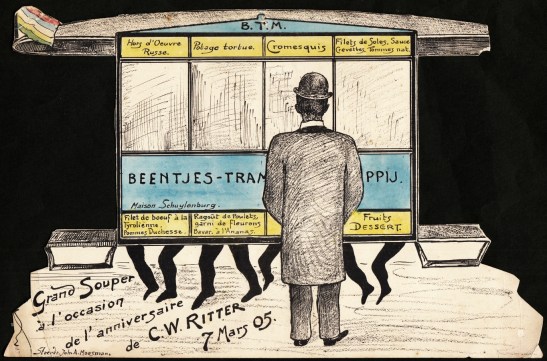 B.T.M.
Hors d'Oeuvre
Russe.
Potage tortue.
Cromesquis
Filets de Soles, Sauce
Crevettes, Pommes nat.
BEENTJES-TRAM PPIJ.
Maison Schuylenburg.
Filet de boeuf à la
Tyrolienne.
Pommes Duchesse.
Ragoût de Poulets,
garni de Fleurons
Bavar. à l'Ananas.
Fruits
DESSERT.
Grand Souper
à l'occasion
de l'anniversaire
de C.W. RITTER
7 Mars 05.
John A. Moesman.